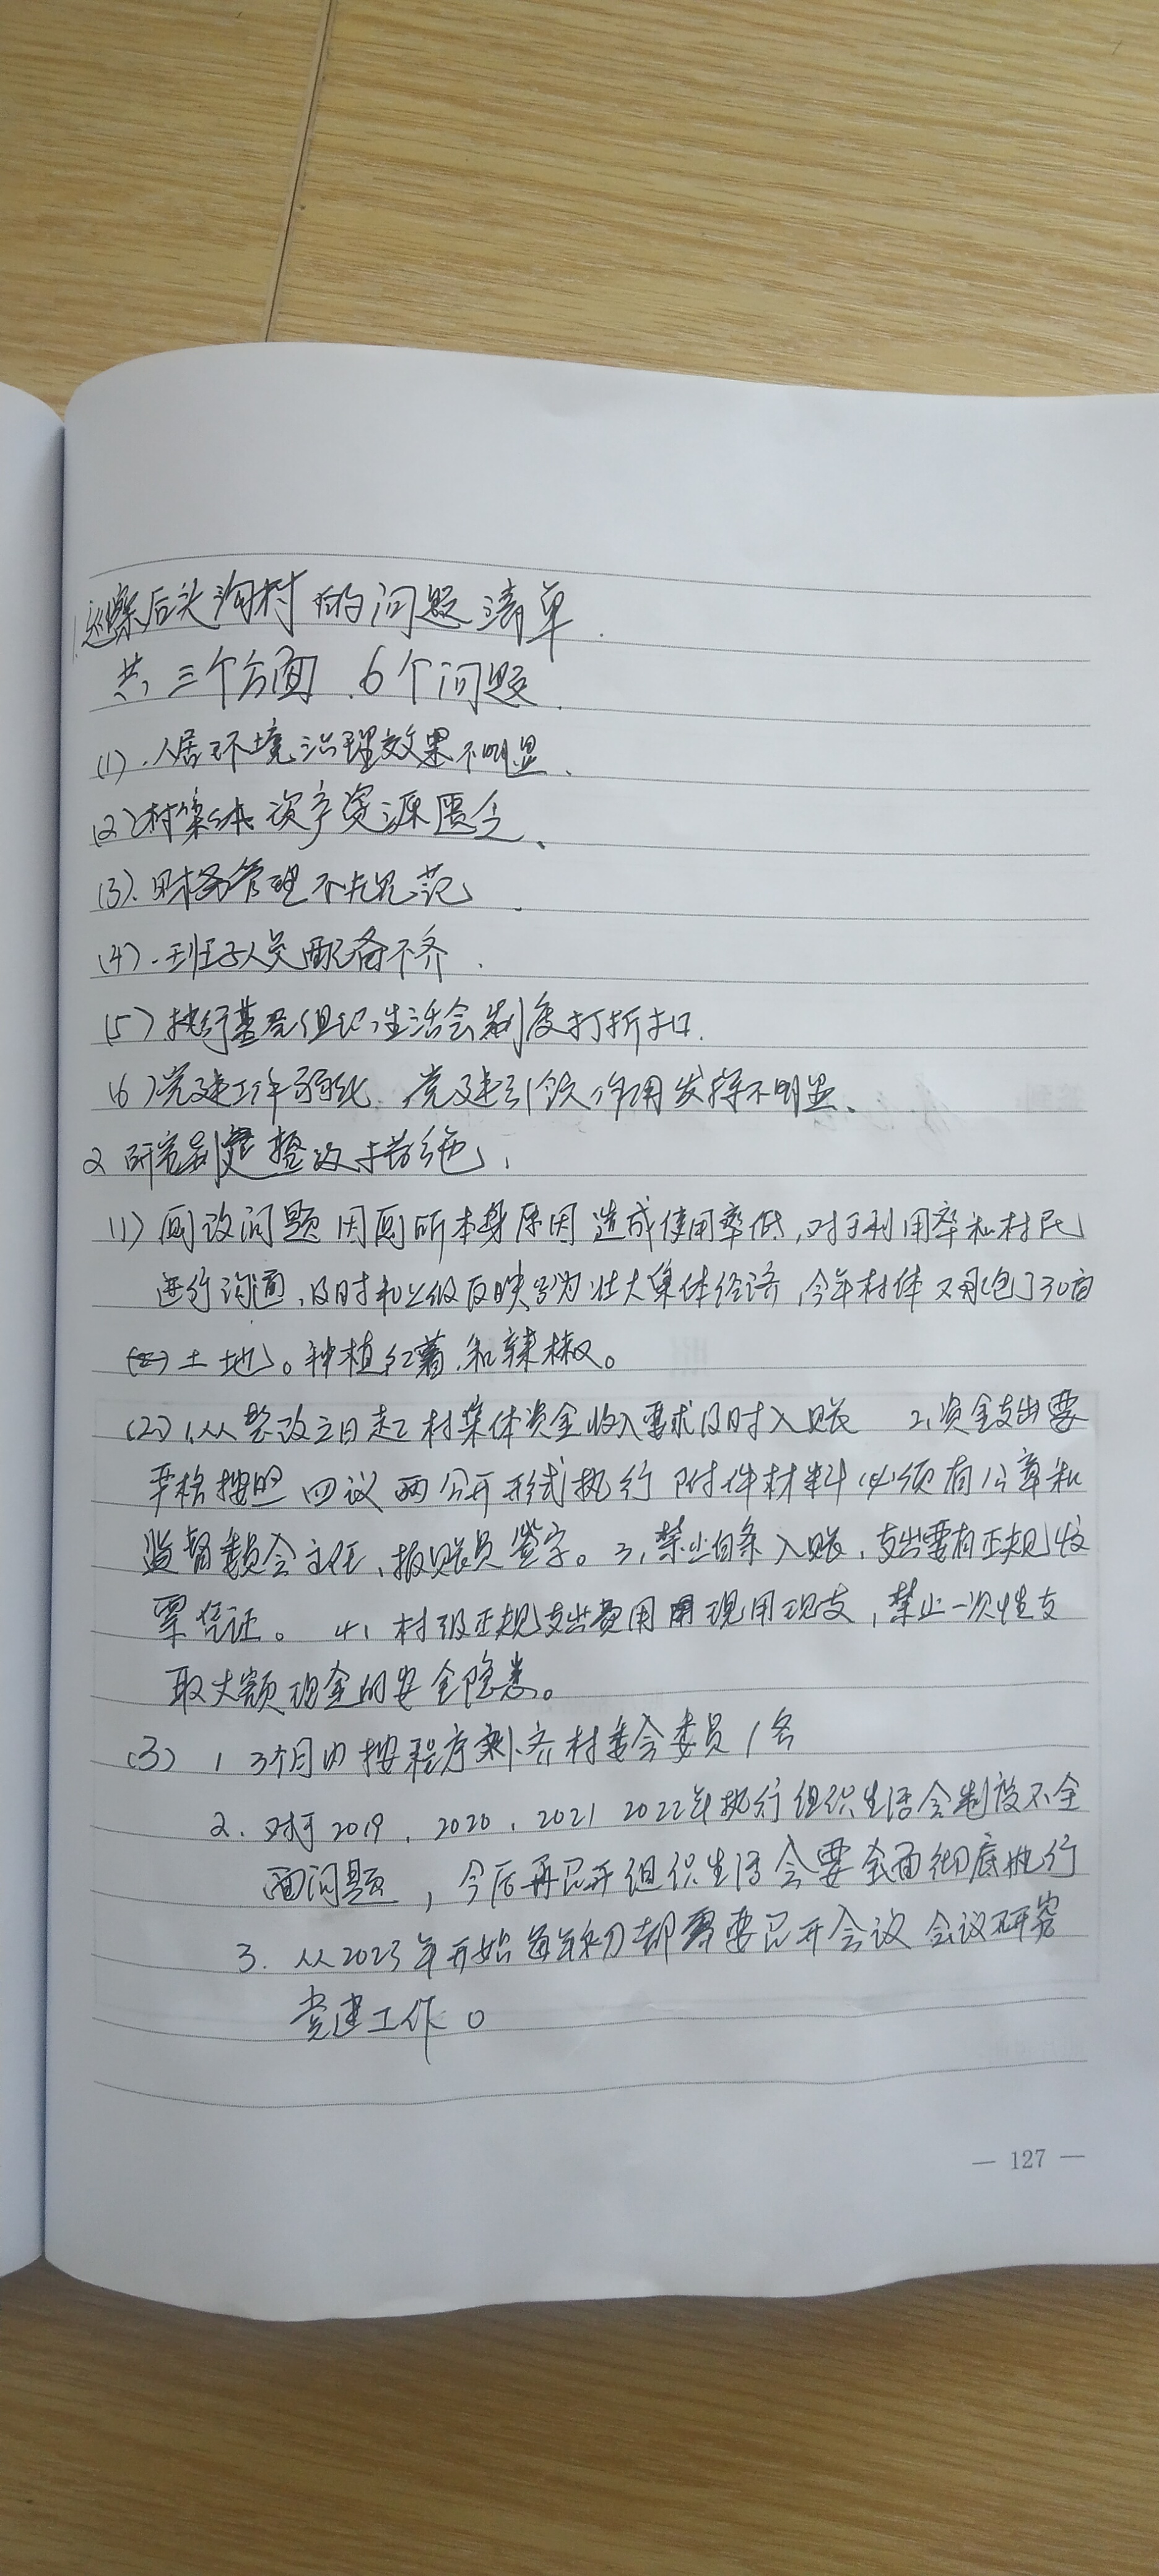 1.巡察后头沟村的问题清单.
共三个方面.6个问题.
(1).人居环境治理效果不明显、
(2)村集体资产资源匮乏、
(3).财务管理不规范.
(4).班子人员配备不齐.
(5)执行基层组织生活会制度打折扣.
(6)党建工作弱化.党建引领作用发挥不明显、
2 研究制定整改措施,
(1)厕改问题因厕所本身原因造成使用率低,对于利用率和村民
进行沟通、及时和上级反映 为壮大集体经济,今年村体又承包了30亩
土地。种植红薯.和辣椒。
(2)1,从整改之日起村集体资金收入要求及时入账 2,资金支出要
严格按照四议两公开形式执行 附件材料必须有公章和
监督委员会主任、报账员签字。3,禁止白条入账,支出要有正规收
票凭证。 4、村级正规支出费用用现用现支,禁止一次性支
取大额现金的安全隐患。
(3) 1 3个月内按程序补齐村委会委员1名
2.对于2019、2020、2021 2022年执行组织生活会制度不全
面问题,今后再召开组织生活会要全面彻底执行
3.从2023年开始每年初都需要召开会议 会议研究
党建工作。
— 127 —